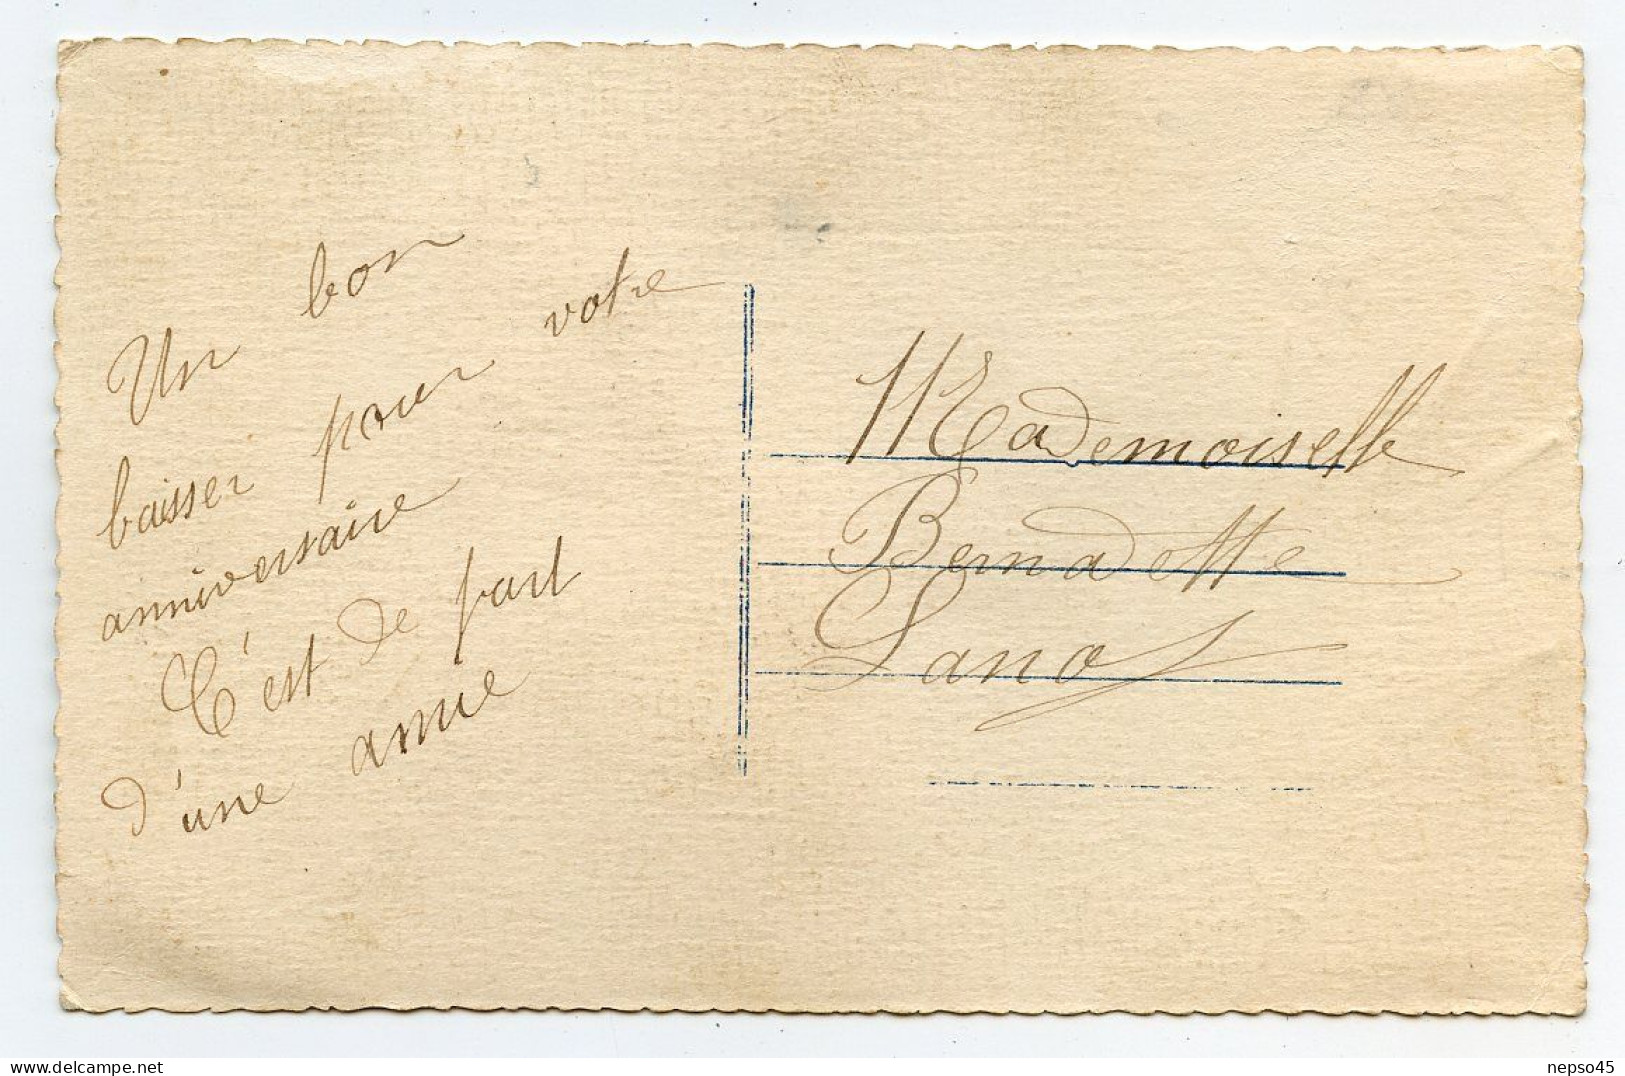 Un bon
baisser pour votre
anniversaire
C'est de part
d'une amie
Mademoiselle
Bernadette
nepso45